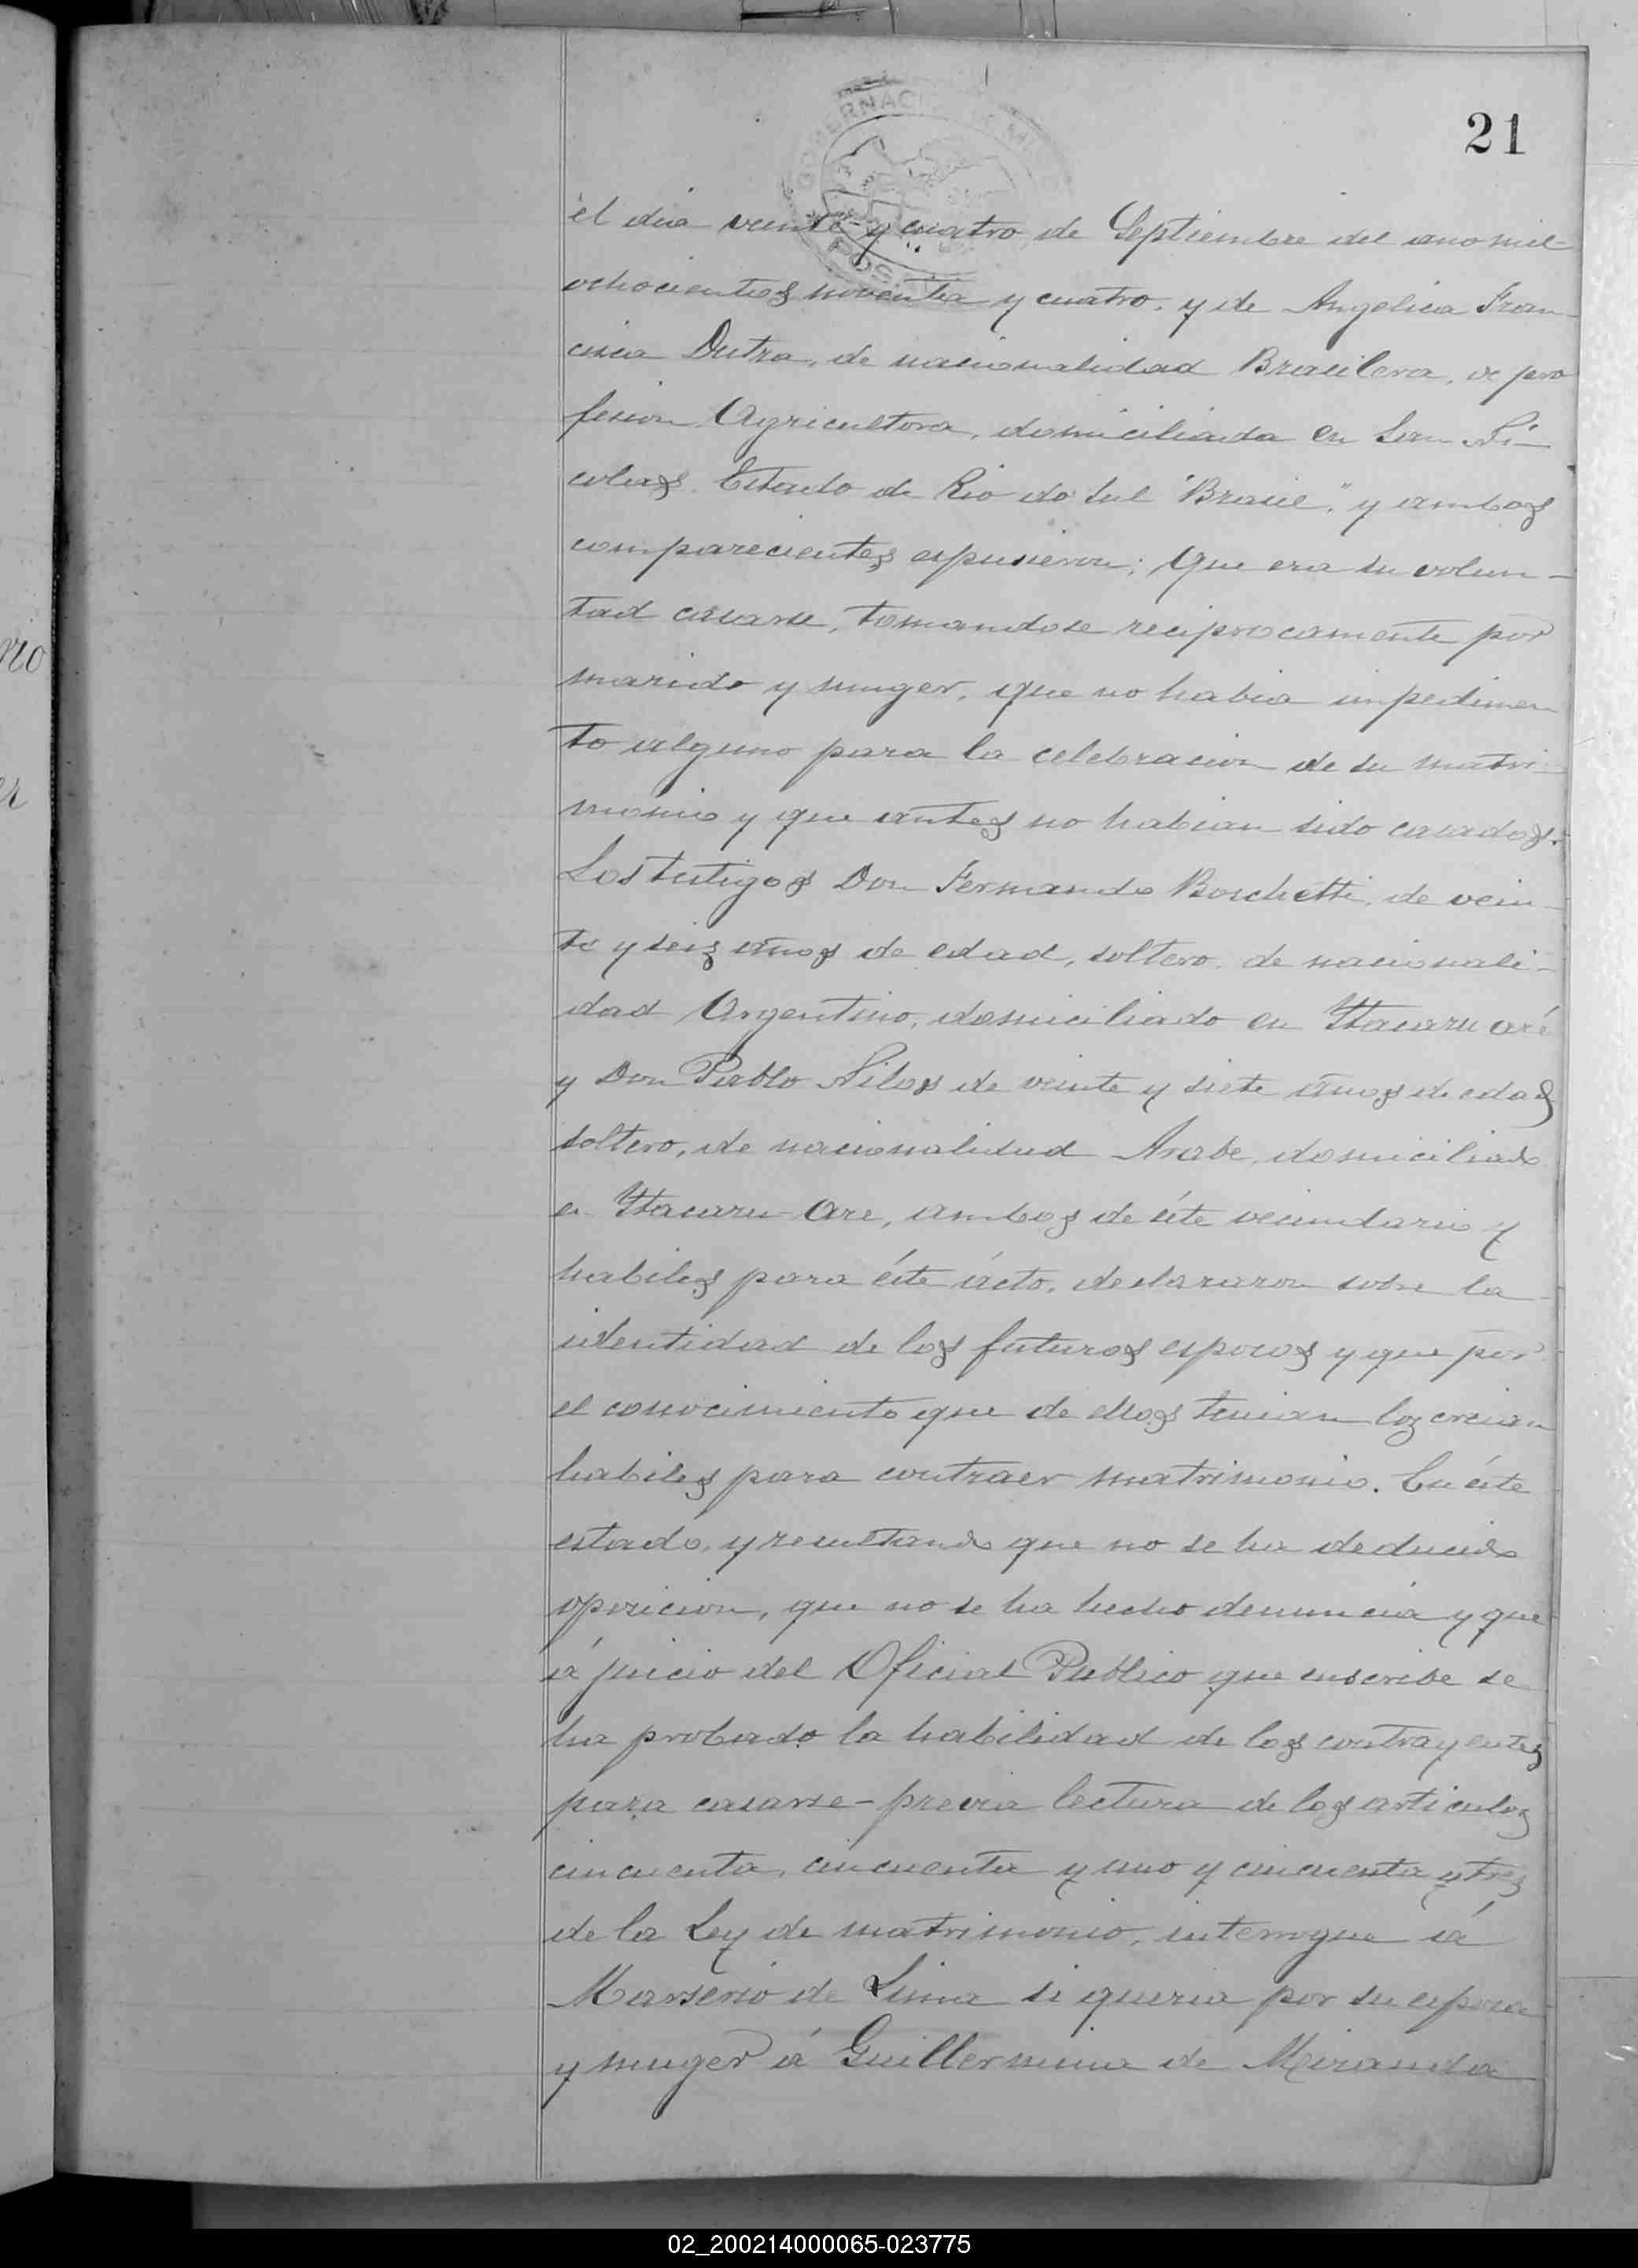 21
GOBERNACI
POS
el dia veinte y cuatro de Septiembre del año mil
ochocientos noventa y cuatro, y de Angelica Fran-
cisca Dutra, de nacionalidad Brasilera, de pro
fesion Agricultora, domiciliada en San Ni-
colas. Estado de Rio do Sul "Brasil," y ambos
comparecientes espusieron; Que era su volun-
tad casarse, tomandose reciprocamente por
marido y muger, que no habia impedimen
to alguno para la celebracion de su matri-
monio y que antes no habian sido casados.
Los testigos Don Fernando Boschetti, de vein-
te y seis años de edad, soltero, de nacionali-
dad Argentino, domiciliado en Itacaru aré
y Don Pablo Nilos de veinte y siete años de edad
soltero, de nacionalidad Arabe, domiciliado
en Itacaru-are, ambos de éste vecindario y
habiles para éste ácto, declararon sobre la
identidad de los futuros esposos y que por
el conocimiento que de ellos tenian los creian
habiles para contraer matrimonio. En éste
estado, y resultando que no se ha deducido
oposicion, que no se ha hecho denuncia y que
á juicio del Oficial Publico que suscribe se
ha probado la habilidad de los contrayentes
para casarse-previa lectura de los articulos
cincuenta, cincuenta y uno y cincuenta y tres
de la Ley de matrimonio, interrogue á
Marserio de Lima si queria por su esposa
y muger á Guillermina de Miranda
rio
er
02_200214000065-023775